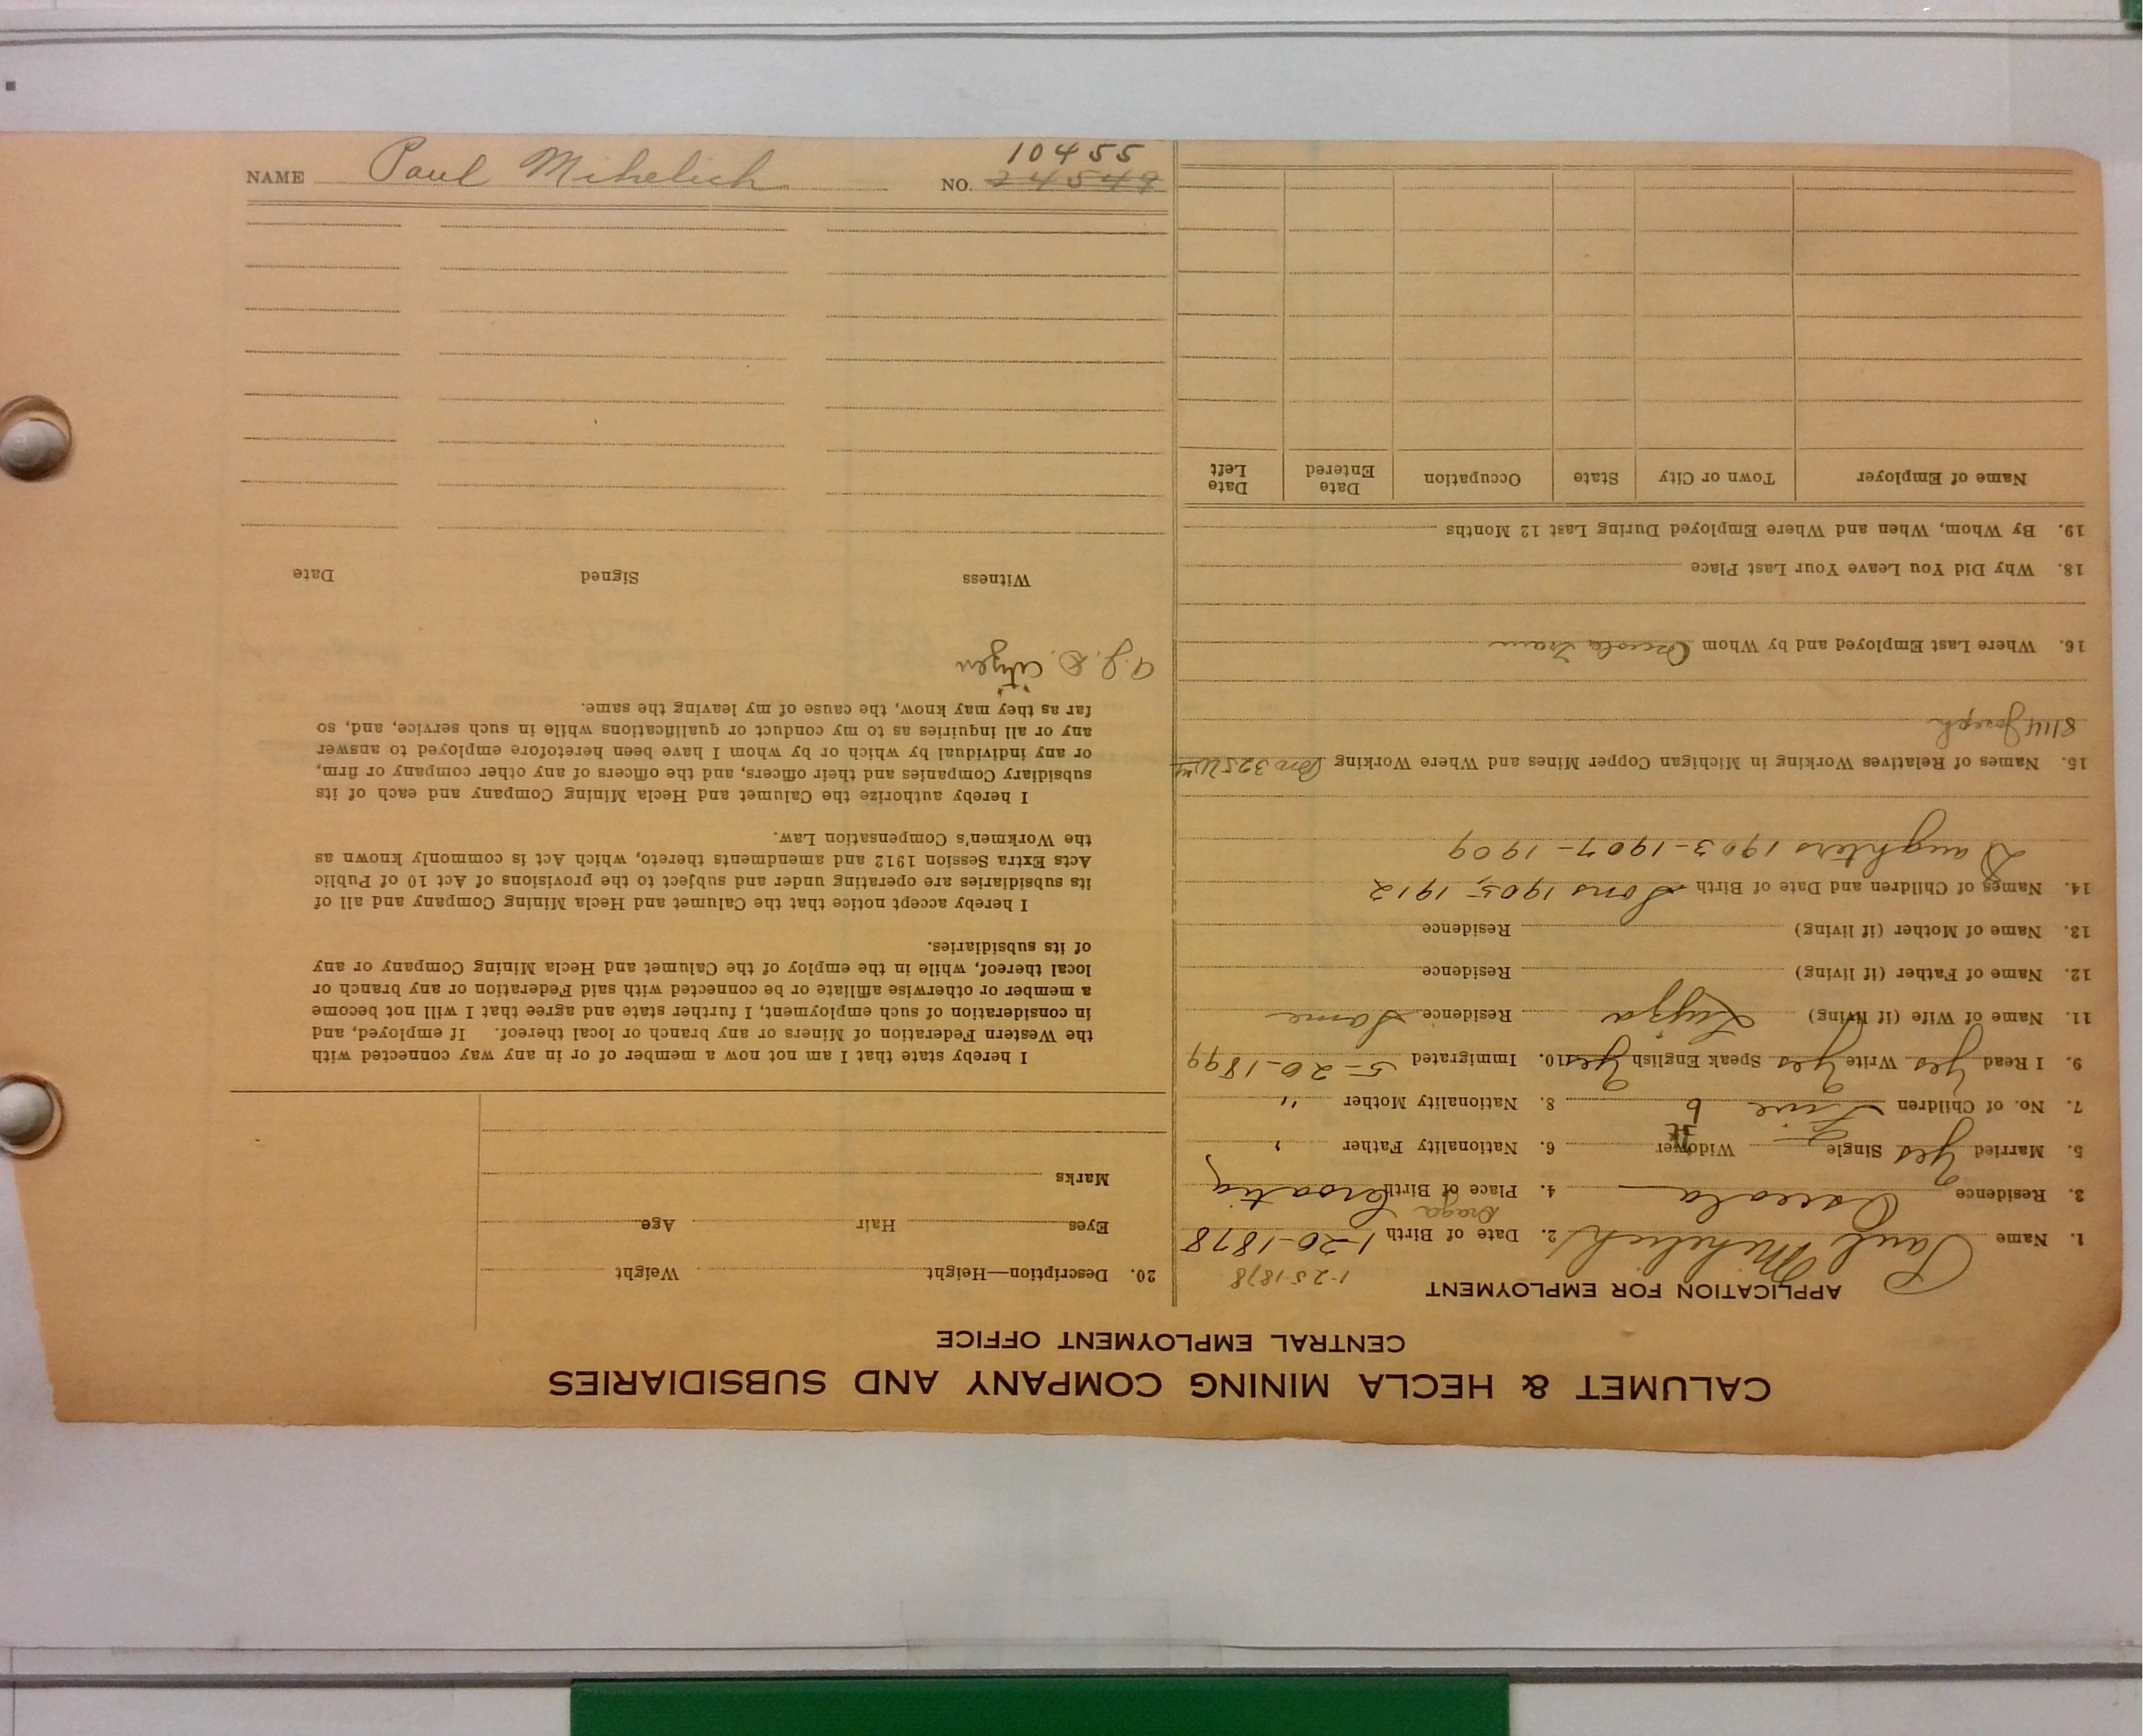 NAME Paul Mihelich NO. 24549 10455
CALUMET & HECLA MINING COMPANY AND SUBSIDIARIES
CENTRAL EMPLOYMENT OFFICE
APPLICATION FOR EMPLOYMENT
1-25-1878
1. Name Paul Mihelich 2. Date of Birth 1-20-1878
Draga
3. Residence Osceola 4. Place of Birth Croatia
5. Married Yes Single Widower 6. Nationality Father "
7. No. of Children Five 6 8. Nationality Mother "
9. I Read Yes Write Yes Speak English Yes 10. Immigrated 5-20-1899
11. Name of Wife (if living) Residence Same
12. Name of Father (if living) Residence
13. Name of Mother (if living) Residence
14. Names of Children and Date of Birth Sons 1905-1912
Daughters 1903-1907-1909
15. Names of Relatives Working in Michigan Copper Mines and Where Working Bro 325
8114 Joseph
16. Where Last Employed and by Whom Osceola Tram
18. Why Did You Leave Your Last Place
19. By Whom, When and Where Employed During Last 12 Months
Name of Employer Town or City State Occupation Date Entered Date Left
20. Description—Height Weight
Eyes Hair Age
Marks
I hereby state that I am not now a member of or in any way connected with
the Western Federation of Miners or any branch or local thereof. If employed, and
in consideration of such employment, I further state and agree that I will not become
a member or otherwise affiliate or be connected with said Federation or any branch or
local thereof, while in the employ of the Calumet and Hecla Mining Company or any
of its subsidiaries.
I hereby accept notice that the Calumet and Hecla Mining Company and all of
its subsidiaries are operating under and subject to the provisions of Act 10 of Public
Acts Extra Session 1912 and amendments thereto, which Act is commonly known as
the Workmen's Compensation Law.
I hereby authorize the Calumet and Hecla Mining Company and each of its
subsidiary Companies and their officers, and the officers of any other company or firm,
or any individual by which or by whom I have been heretofore employed to answer
any or all inquiries as to my conduct or qualifications while in such service, and, so
far as they may know, the cause of my leaving the same.
Citizen
Witness Signed Date